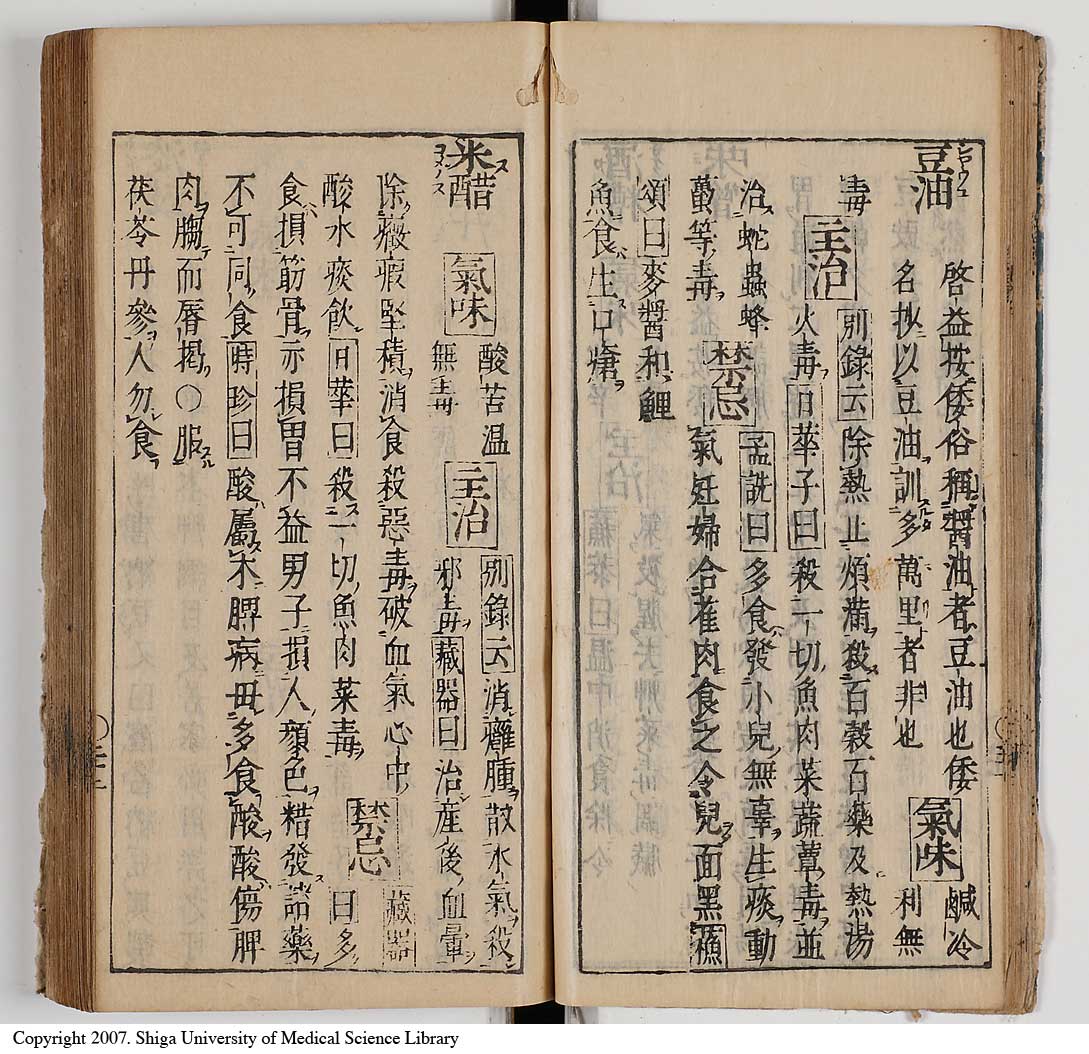 豆油 啓益按倭俗稱醤油者豆油也倭
名抄以豆油訓多萬里者非也 氣味 鹹冷
利無
毒 主治 別錄云除熱止煩滿殺百穀百藥及熱湯
火毒日華子曰殺一切魚肉菜蔬蕈毒並
治蛇蟲蜂
蠆等毒 禁忌 孟詵曰多食發小兒無辜生痰動
氣妊婦合雀肉食之令兒面黑
頌曰麥醤和鯉
魚食生口瘡
米醋 氣味 酸苦温
無毒 主治 別錄云消癰腫散水氣殺
邪毒藏器曰治產後血暈
除癥瘕堅積消食殺惡毒破血氣心中
酸水痰飲日華曰殺一切魚肉菜毒 禁忌 藏器
曰多
食損筋骨亦損胃不益男子損人顏色糙發諸藥
不可同食時珍曰酸屬木脾病毋多食酸酸傷脾
肉䐢而唇揭〇服
茯苓丹參人勿食
Copyright 2007. Shiga University of Medical Science Library